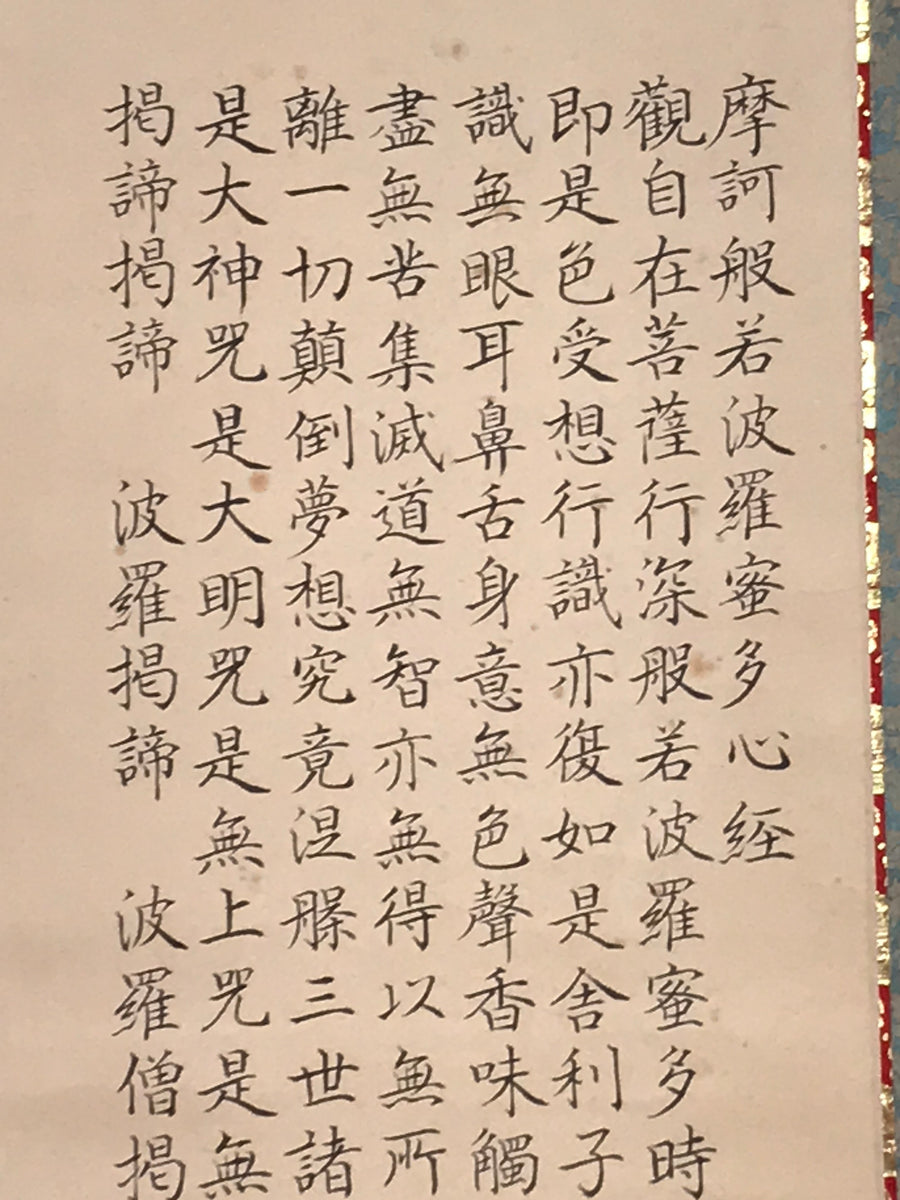 摩訶般若波羅蜜多心経
觀自在菩薩行深般若波羅蜜多時
即是色受想行識亦復如是舎利子
識無眼耳鼻舌身意無色聲香味觸
盡無苦集滅道無智亦無得以無所
離一切顛倒夢想究竟涅槃三世諸
是大神咒是大明咒是無上咒是無
揭諦揭諦 波羅揭諦 波羅僧揭